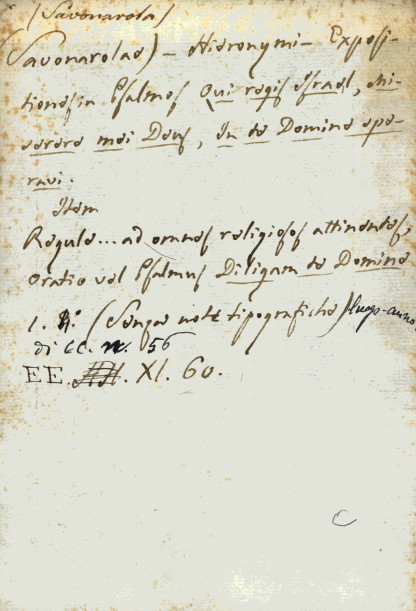 (Savonarola)
Savonarolae) - Hieronymi - Exposi-
tiones in Psalmos Qui regis Israel, Mi-
serere mei Deus, In te Domine spe-
ravi.
Item
Regule... ad omnes religiosos attinentes,
Oratio vel Psalmus Diligam te Domine
(Senza note tipografiche) luogo-anno
di cc. n. 56
EE. XI. 60.
C